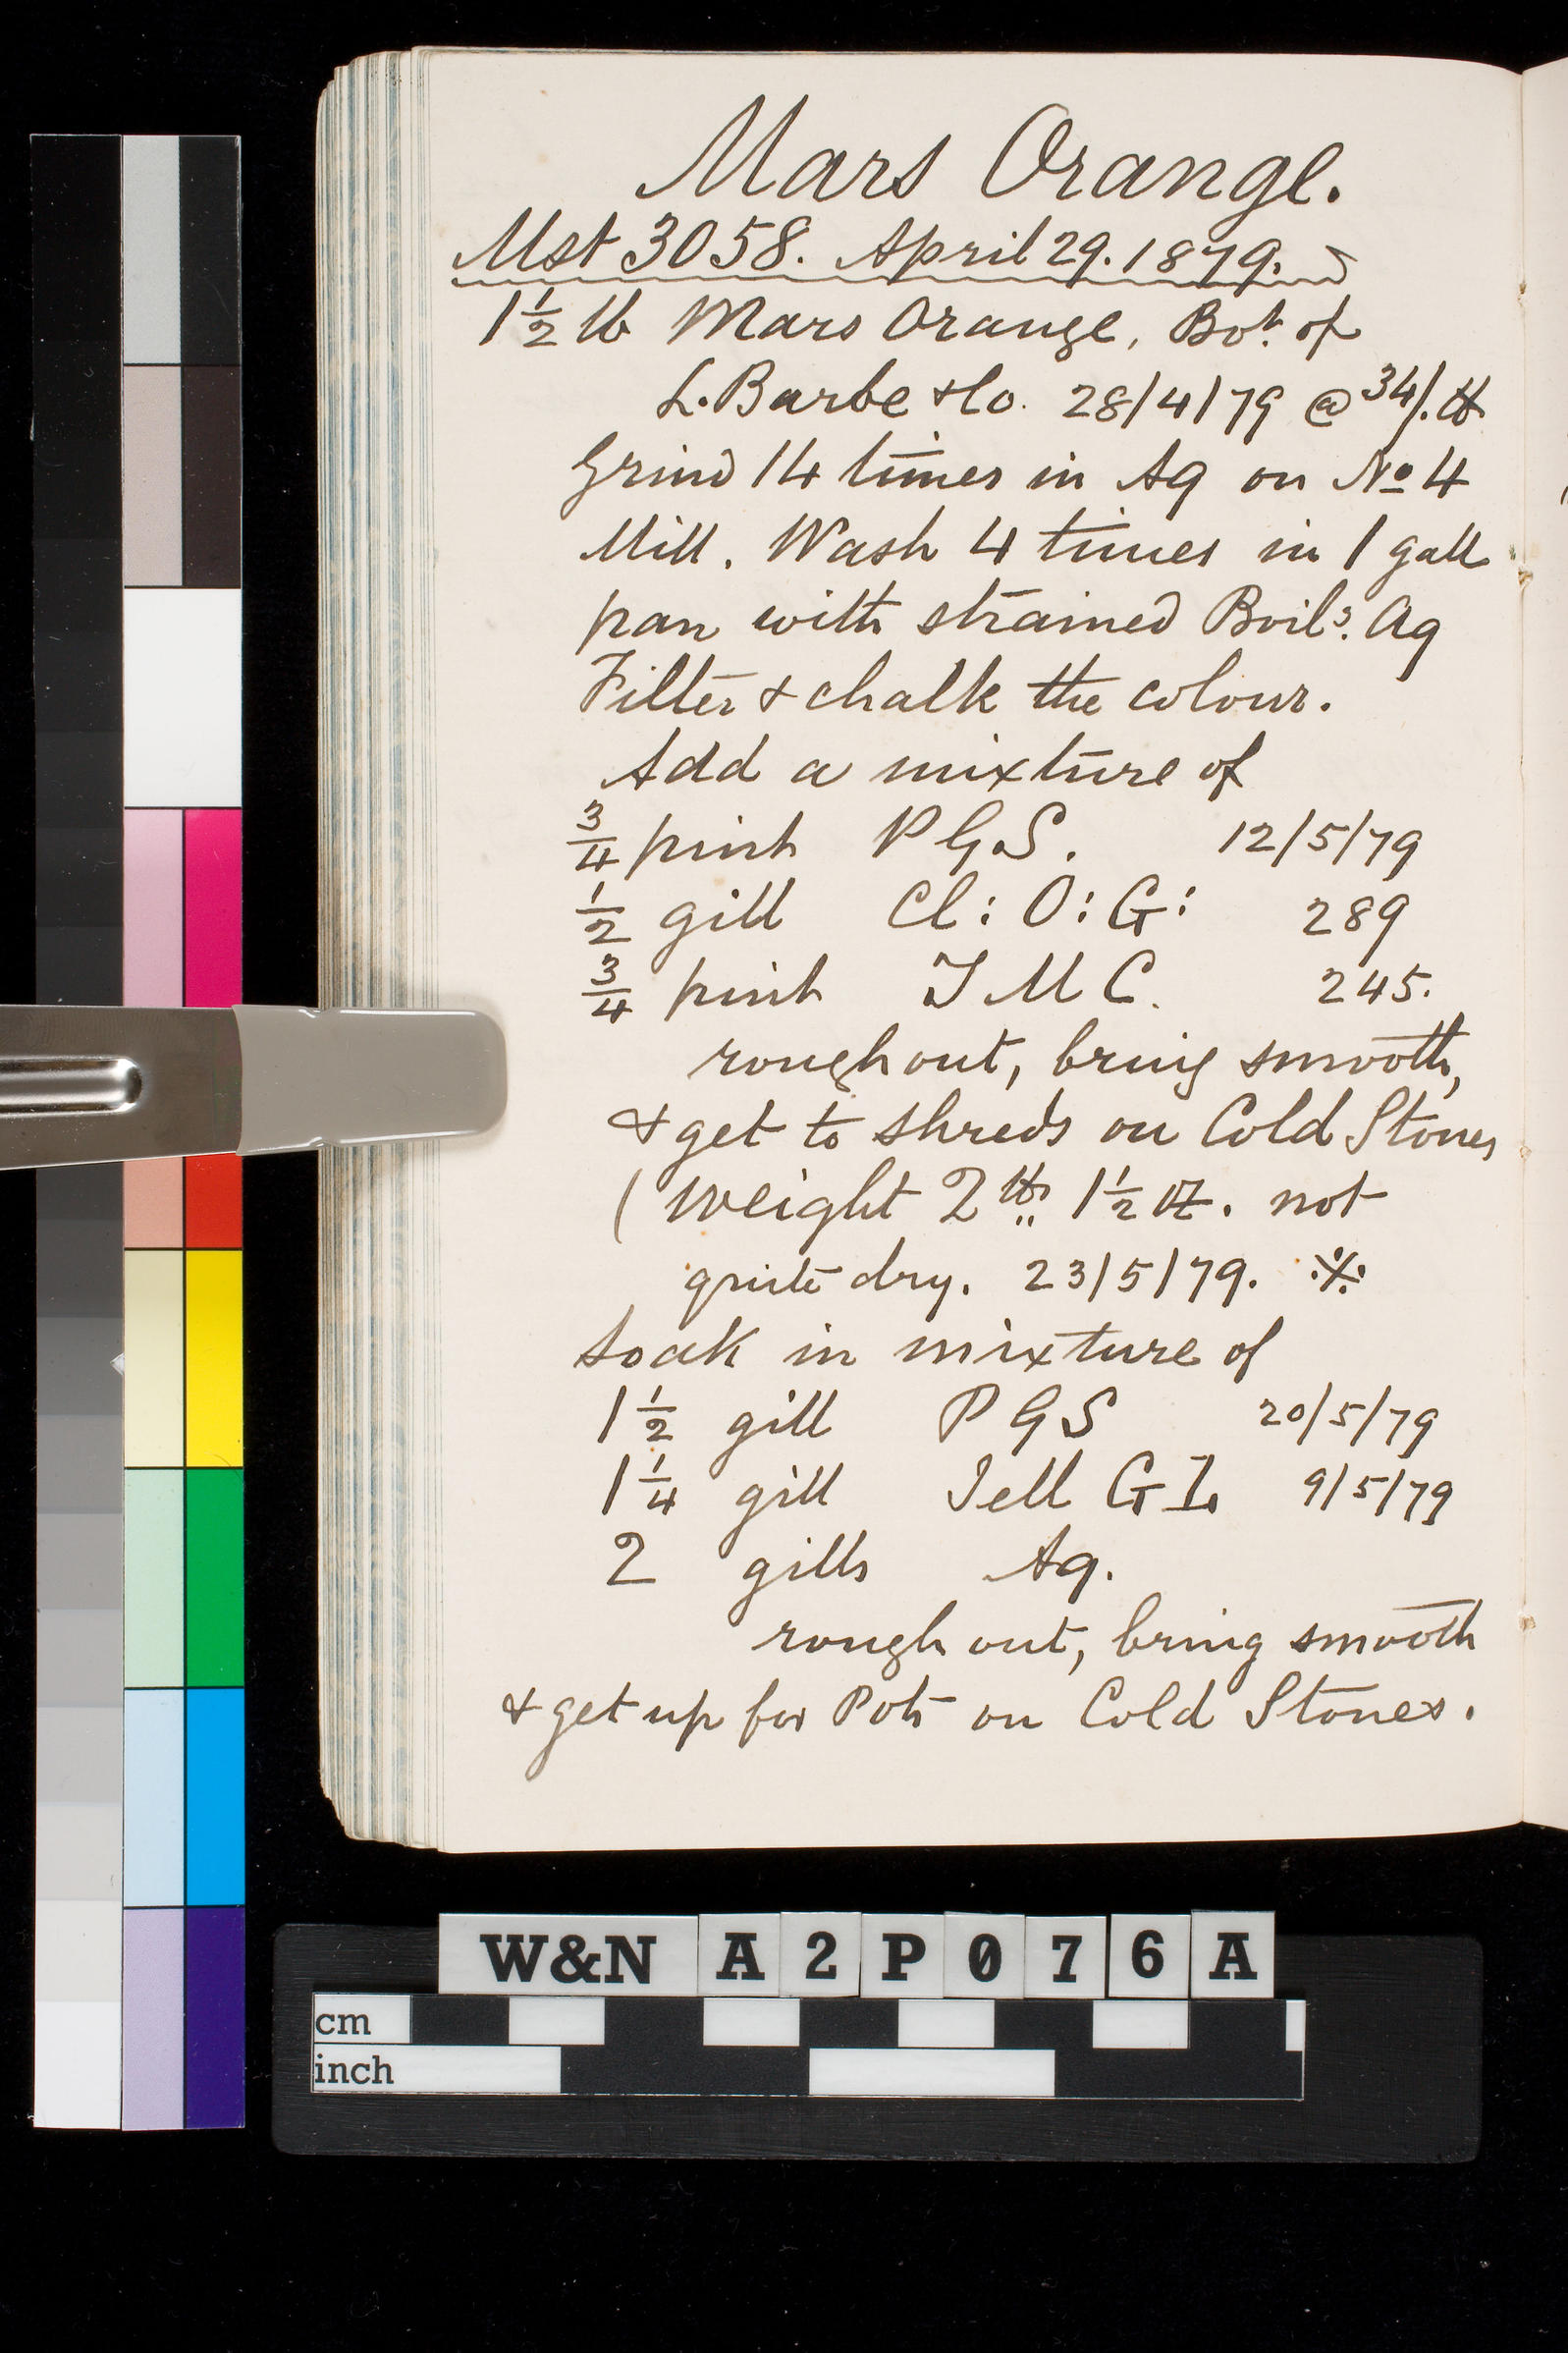 Mars Orange.
Mst 3058. April 29. 1879.
1 1/2 lb Mars Orange, Bot. of
L. Barbe & Co. 28/4/79 @ 34/. lb
Grind 14 times in Aq on No 4
Mill. Wash 4 times in 1 gall
pan with strained Boilg. Aq
Filter & chalk the colour.
Add a mixture of
3/4 pint P G S. 12/5/79
1/2 gill Cl: O: G: 289
3/4 pint T M C. 245.
rough out, bring smooth,
& get to shreds on Cold Stones
( Weight 2 lbs 1 1/2 oz. not
quite dry. 23/5/79. ※
Soak in mixture of
1 1/2 gill P G S 20/5/79
1 1/4 gill Jell G I. 9/5/79
2 gills Aq.
rough out, bring smooth
& get up for Pots on Cold Stones.
W&N A2P076A
cm
inch